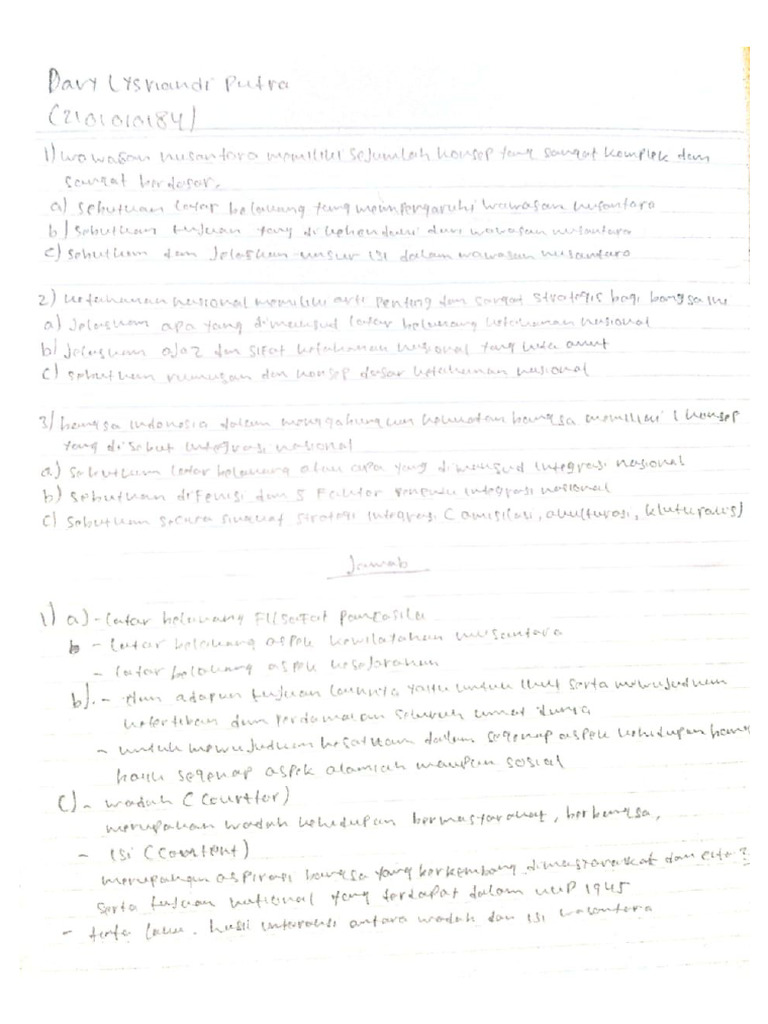 Davy Lysriandi Putra
(2101010184)
1) wawasan nusantara memiliki sejumlah konsep yang sangat komplek dan
sangat berdasar.
a) sebutkan latar belakang yang mempengaruhi wawasan nusantara
b) sebutkan tujuan yang dikehendaki dari wawasan nusantara
c) sebutkan dan jelaskan unsur isi dalam wawasan nusantara
2) ketahanan nasional memiliki arti penting dan sangat strategis bagi bangsa ini
a) Jelaskan apa yang dimaksud latar belakang ketahanan nasional
b) jelaskan azaz dan sifat ketahanan nasional yang kita anut
c) sebutkan rumusan dan konsep dasar ketahanan nasional
3) bangsa indonesia dalam menggabungkan kekuatan bangsa memiliki 1 konsep
yang di sebut integrasi nasional
a.) sebutkan latar belakang atau apa yang dimaksud integrasi nasional
b) sebutkan difenisi dan 5 Faktor penentu integrasi nasional
c) sebutkan secara singkat strategi integrasi (amisilasi, akulturasi, kluturalis)
Jawab
1) a) - latar belakang Filsafat pancasila
b - latar belakang aspek kewilayahan nusantara
- latar belakang aspek kesejarahan
b). - dan adapun tujuan lainnya yaitu untuk ikut serta mewujudkan
ketertiban dan perdamaian seluruh umat dunia
- untuk mewujudkan kesatuan dalam segenap aspek kehidupan
baik segenap aspek alamiah maupun sosial
c) - wadah (
merupakan wadah kehidupan bermasyarakat, berbangsa,
- isi (
merupakan aspirasi bangsa yang berkembang dimasyarakat dan cita²
serta tujuan nasional yang terdapat dalam UUD 1945
- tata laku. hasil interaksi antara wadah dan isi